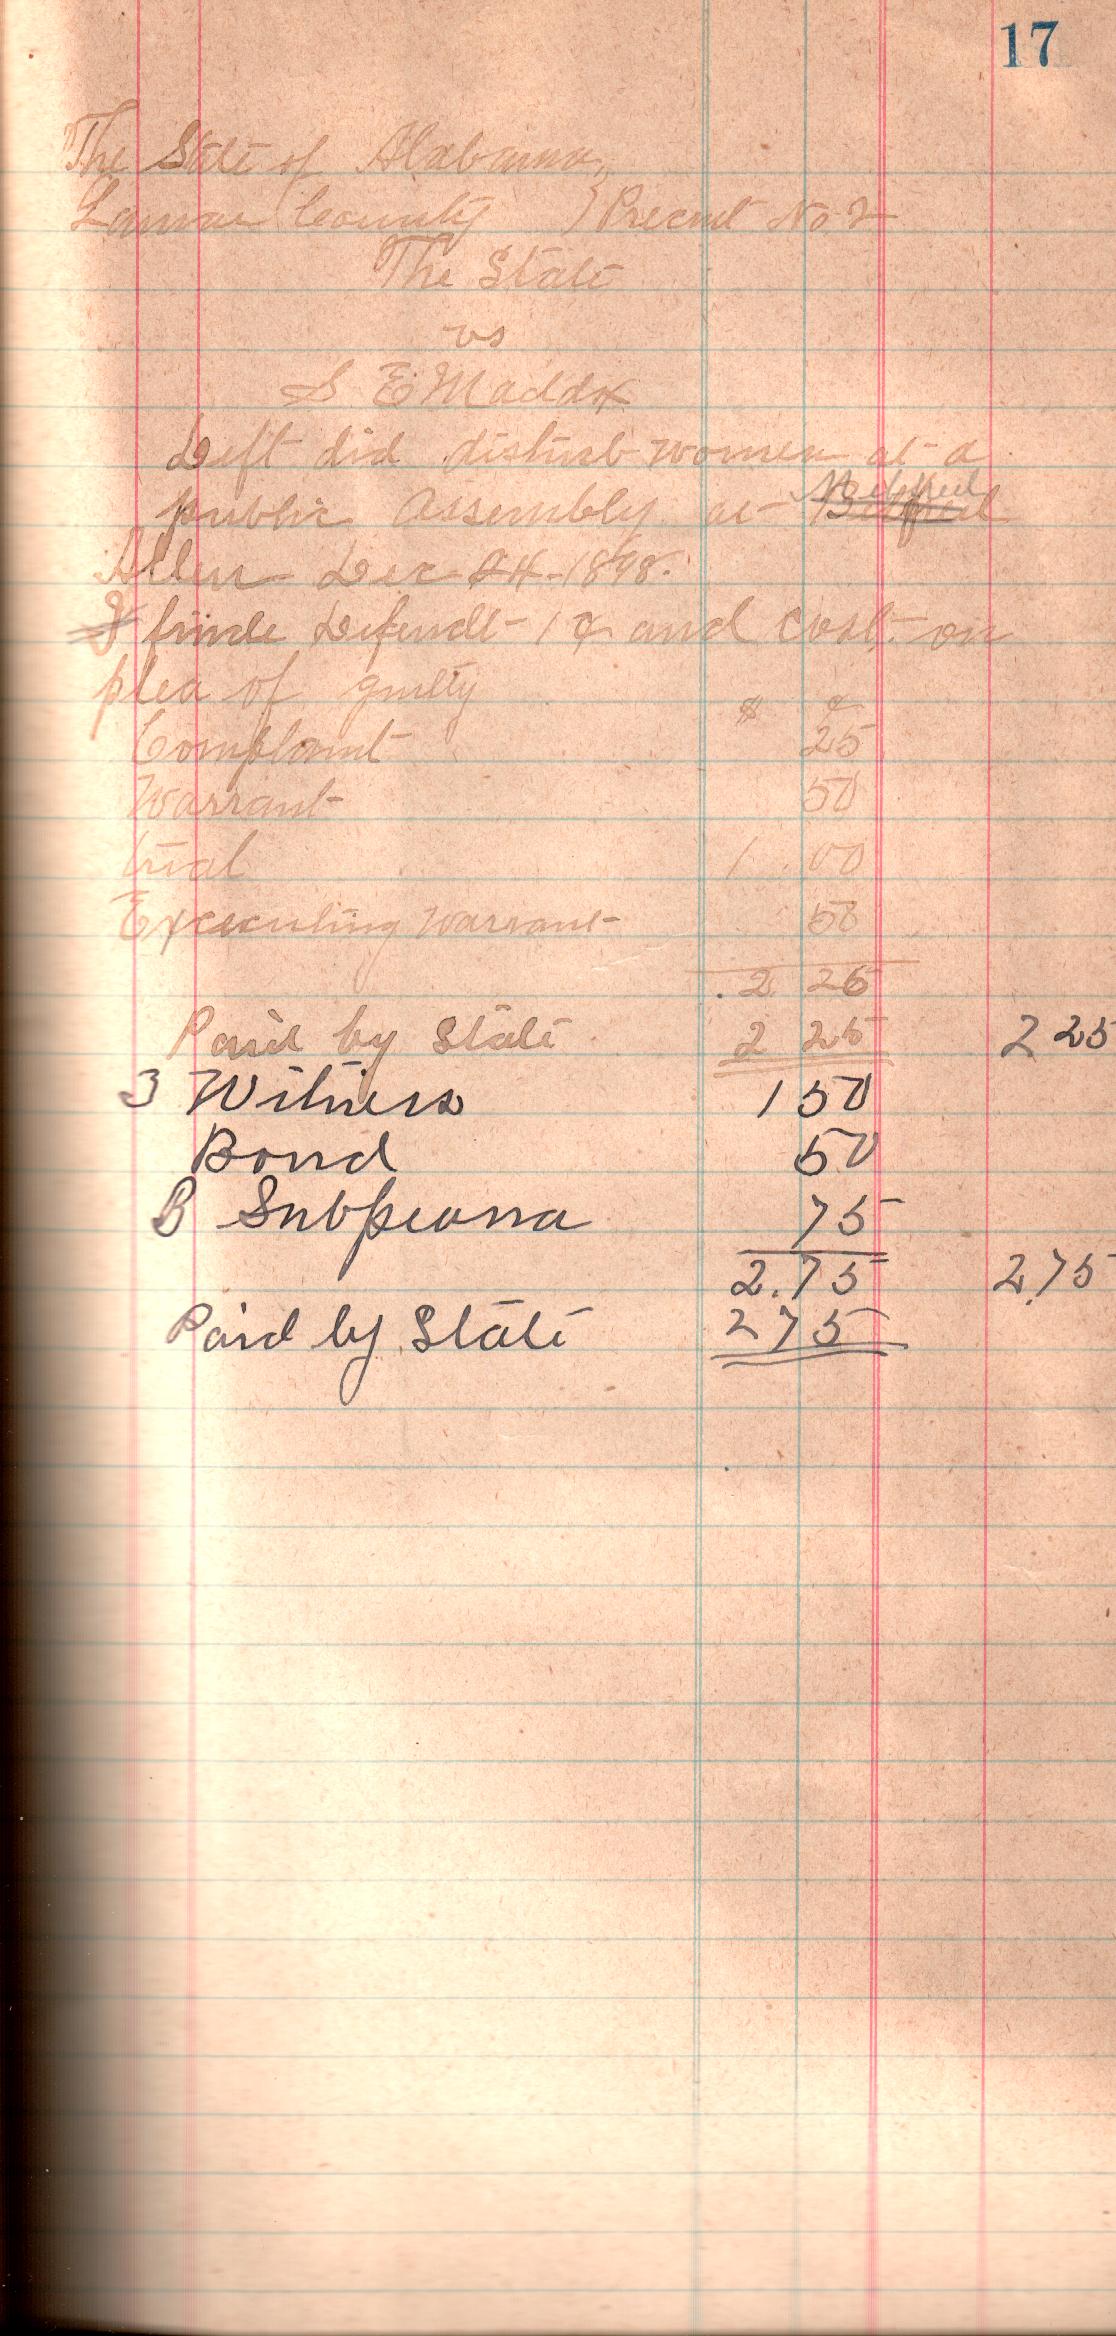 17
The State of Alabama,
Lamar County } Precint No. 2
The State
vs
S E Maddox
Deft did disturb women at a
public assembly at
Allen Dec 24-1898.
I finde Defendt 1 ¢ and cost on
plea of guilty
$ ¢
Complaint 25
Warrant 50
trial 1 00
Executing Warrant 50
2 25
Paid by State 2 25 2 25
3 Witness 1 50
Bond 50
3 Subpeona 75
2.75 2.75
Paid by State 2 75